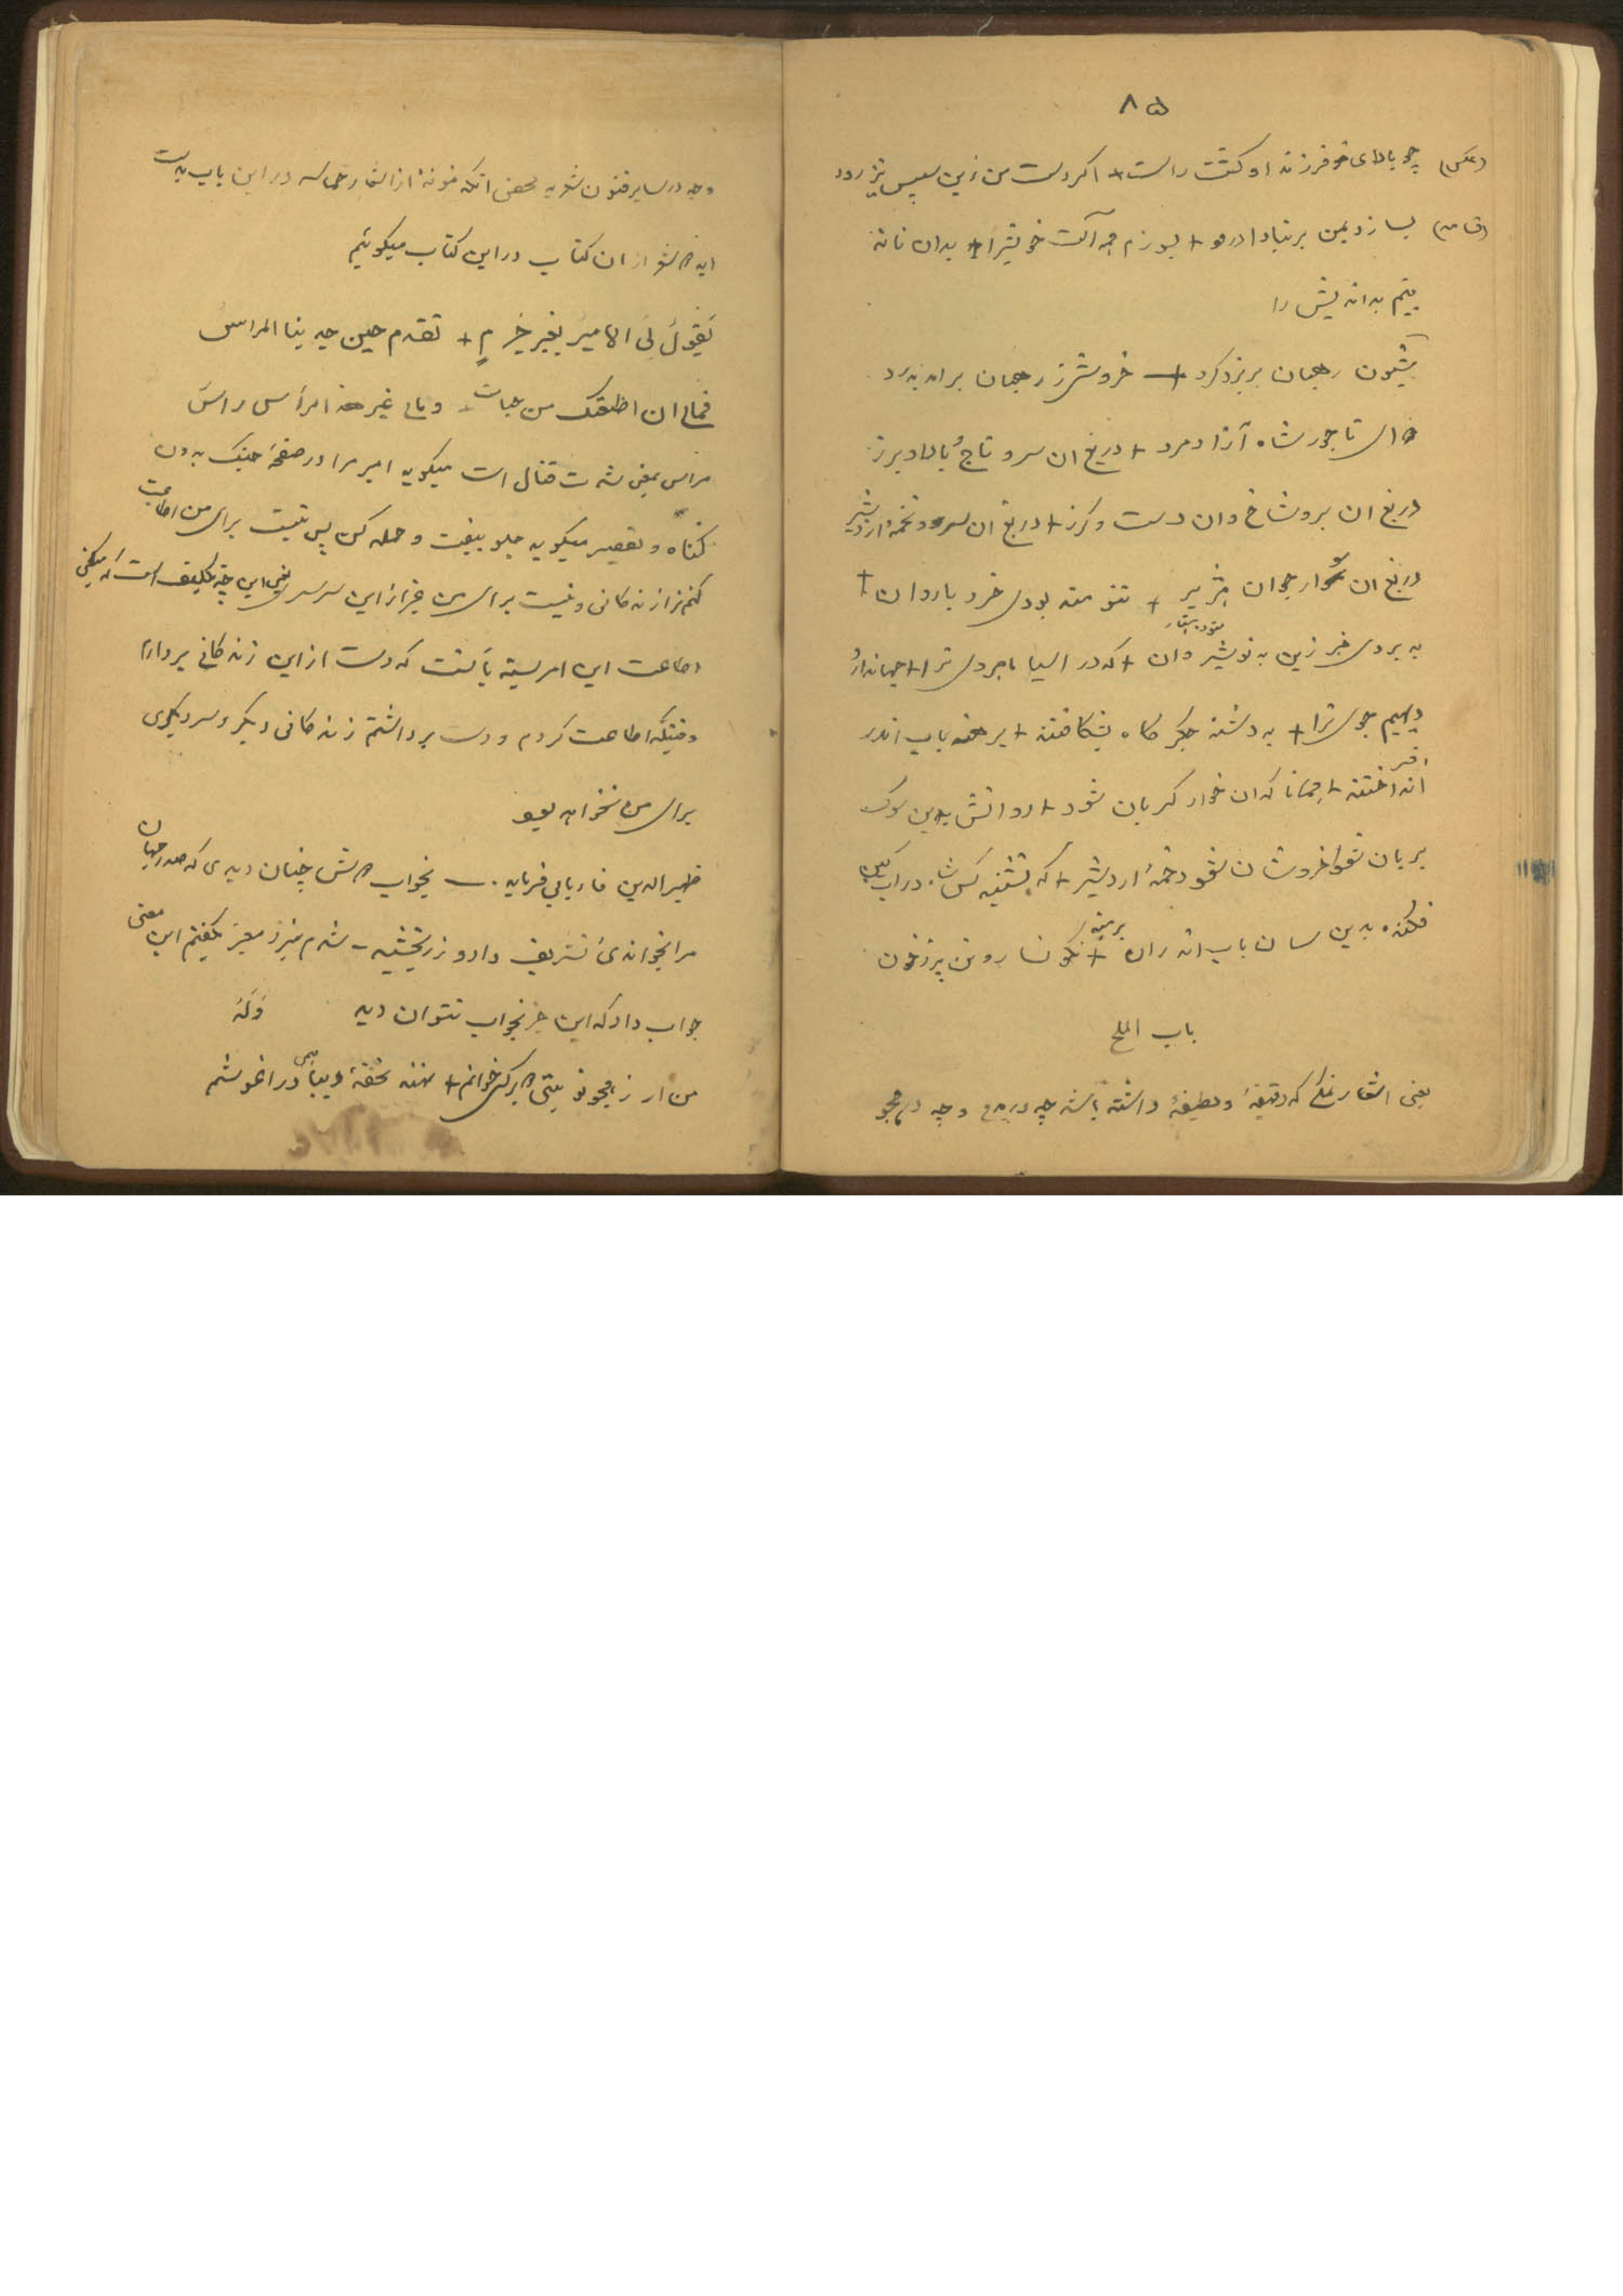 ۸۵
(عکس) چو بالای فرزند او گشت راست + اکر دست من زین سپس نیز رود
(قا مه) بسازد بمن بر تباه + بسوزم همه آلت خویشرا + بدان تا نه
بینم بداندیش را
بشیون رهبان بر یزدکرد + خروش رهبان براه بدرد
که ای تاجور شاه آزاد مرد + دریغ ان سر و تاج و بالا و برز
دریغ ان بر و شاخ و ان دست و کرز + دریغ ان سر و تخمهٔ اردشیر
دریغ ان سوار جوان هژیر + تنومند بودی خرد با روان +
به بردی خبر زین به نوشیروان + که در اسیا ماه روی ترا + جهاندار
دیهیم جوی ترا + به دشنه جکر کاه بشکافتند + برهنه باب اندر
انداختند + همانا که ان خوار کریان شود + روانش بدین سوک
بریان شود خروشان شود دخمهٔ اردشیر + که
فکنده بدین سان باب اندران + نکونسار و تن پر ز خون
باب الملح
یعنی اشعار که دقیقهٔ و لطیفهٔ داشته باشد چه در مدح و چه در هجو
و چه در سایر فنون شعریه محض انکه نمونهٔ از اشعار حماسه در این باب بدست
اید شعر از ان کتاب در این کتاب میکوئیم
یَقُولُ لِیَ الامیرُ بغیر جُرمٍ + تقدم حین جد بنا المراسُ
فمالی ان اطعتک من حیات + و مالی غیر هذا الرأس راس
مراس بمعنی شدت قتال است میکوید امیر مرا در صفحهٔ جنک بدون
کناه و تقصیر میکوید جلو بیفت و حمله کن پس نیست برای من اطاعت
کنم ترا زندکانی و نیست برای من غیر از این سر سر یعنی این چه تکلیف است که میکنی
اطاعت این امر بسته بآنست که دست از این زندکانی بردارم
وقتیکه اطاعت کردم و دست برداشتم زندکانی دیکر و سر دیکری
برای من نخواهد بود
ظهیر الدین فاریابی فرماید ـ بخواب دوش چنان دیدی که صدر جهان
مرا بخواندی تشریف داد و زر بخشید - شدم بنزد معبر بکفتم این معنی
جواب داد که این جز بخواب نتوان دید وَلَهُ
من ار ز هجو تو بیتی بر کس خوانم + نهند تحفهٔ دیبا همی در اغوشم